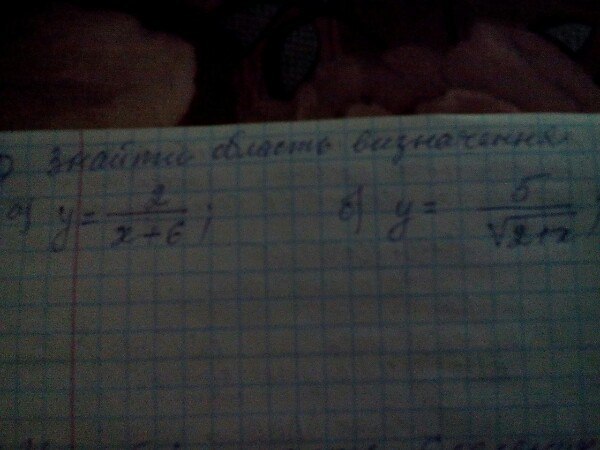 знайти область визначення
а) y = 2/(x+6); б) y = 5/√(2+x);